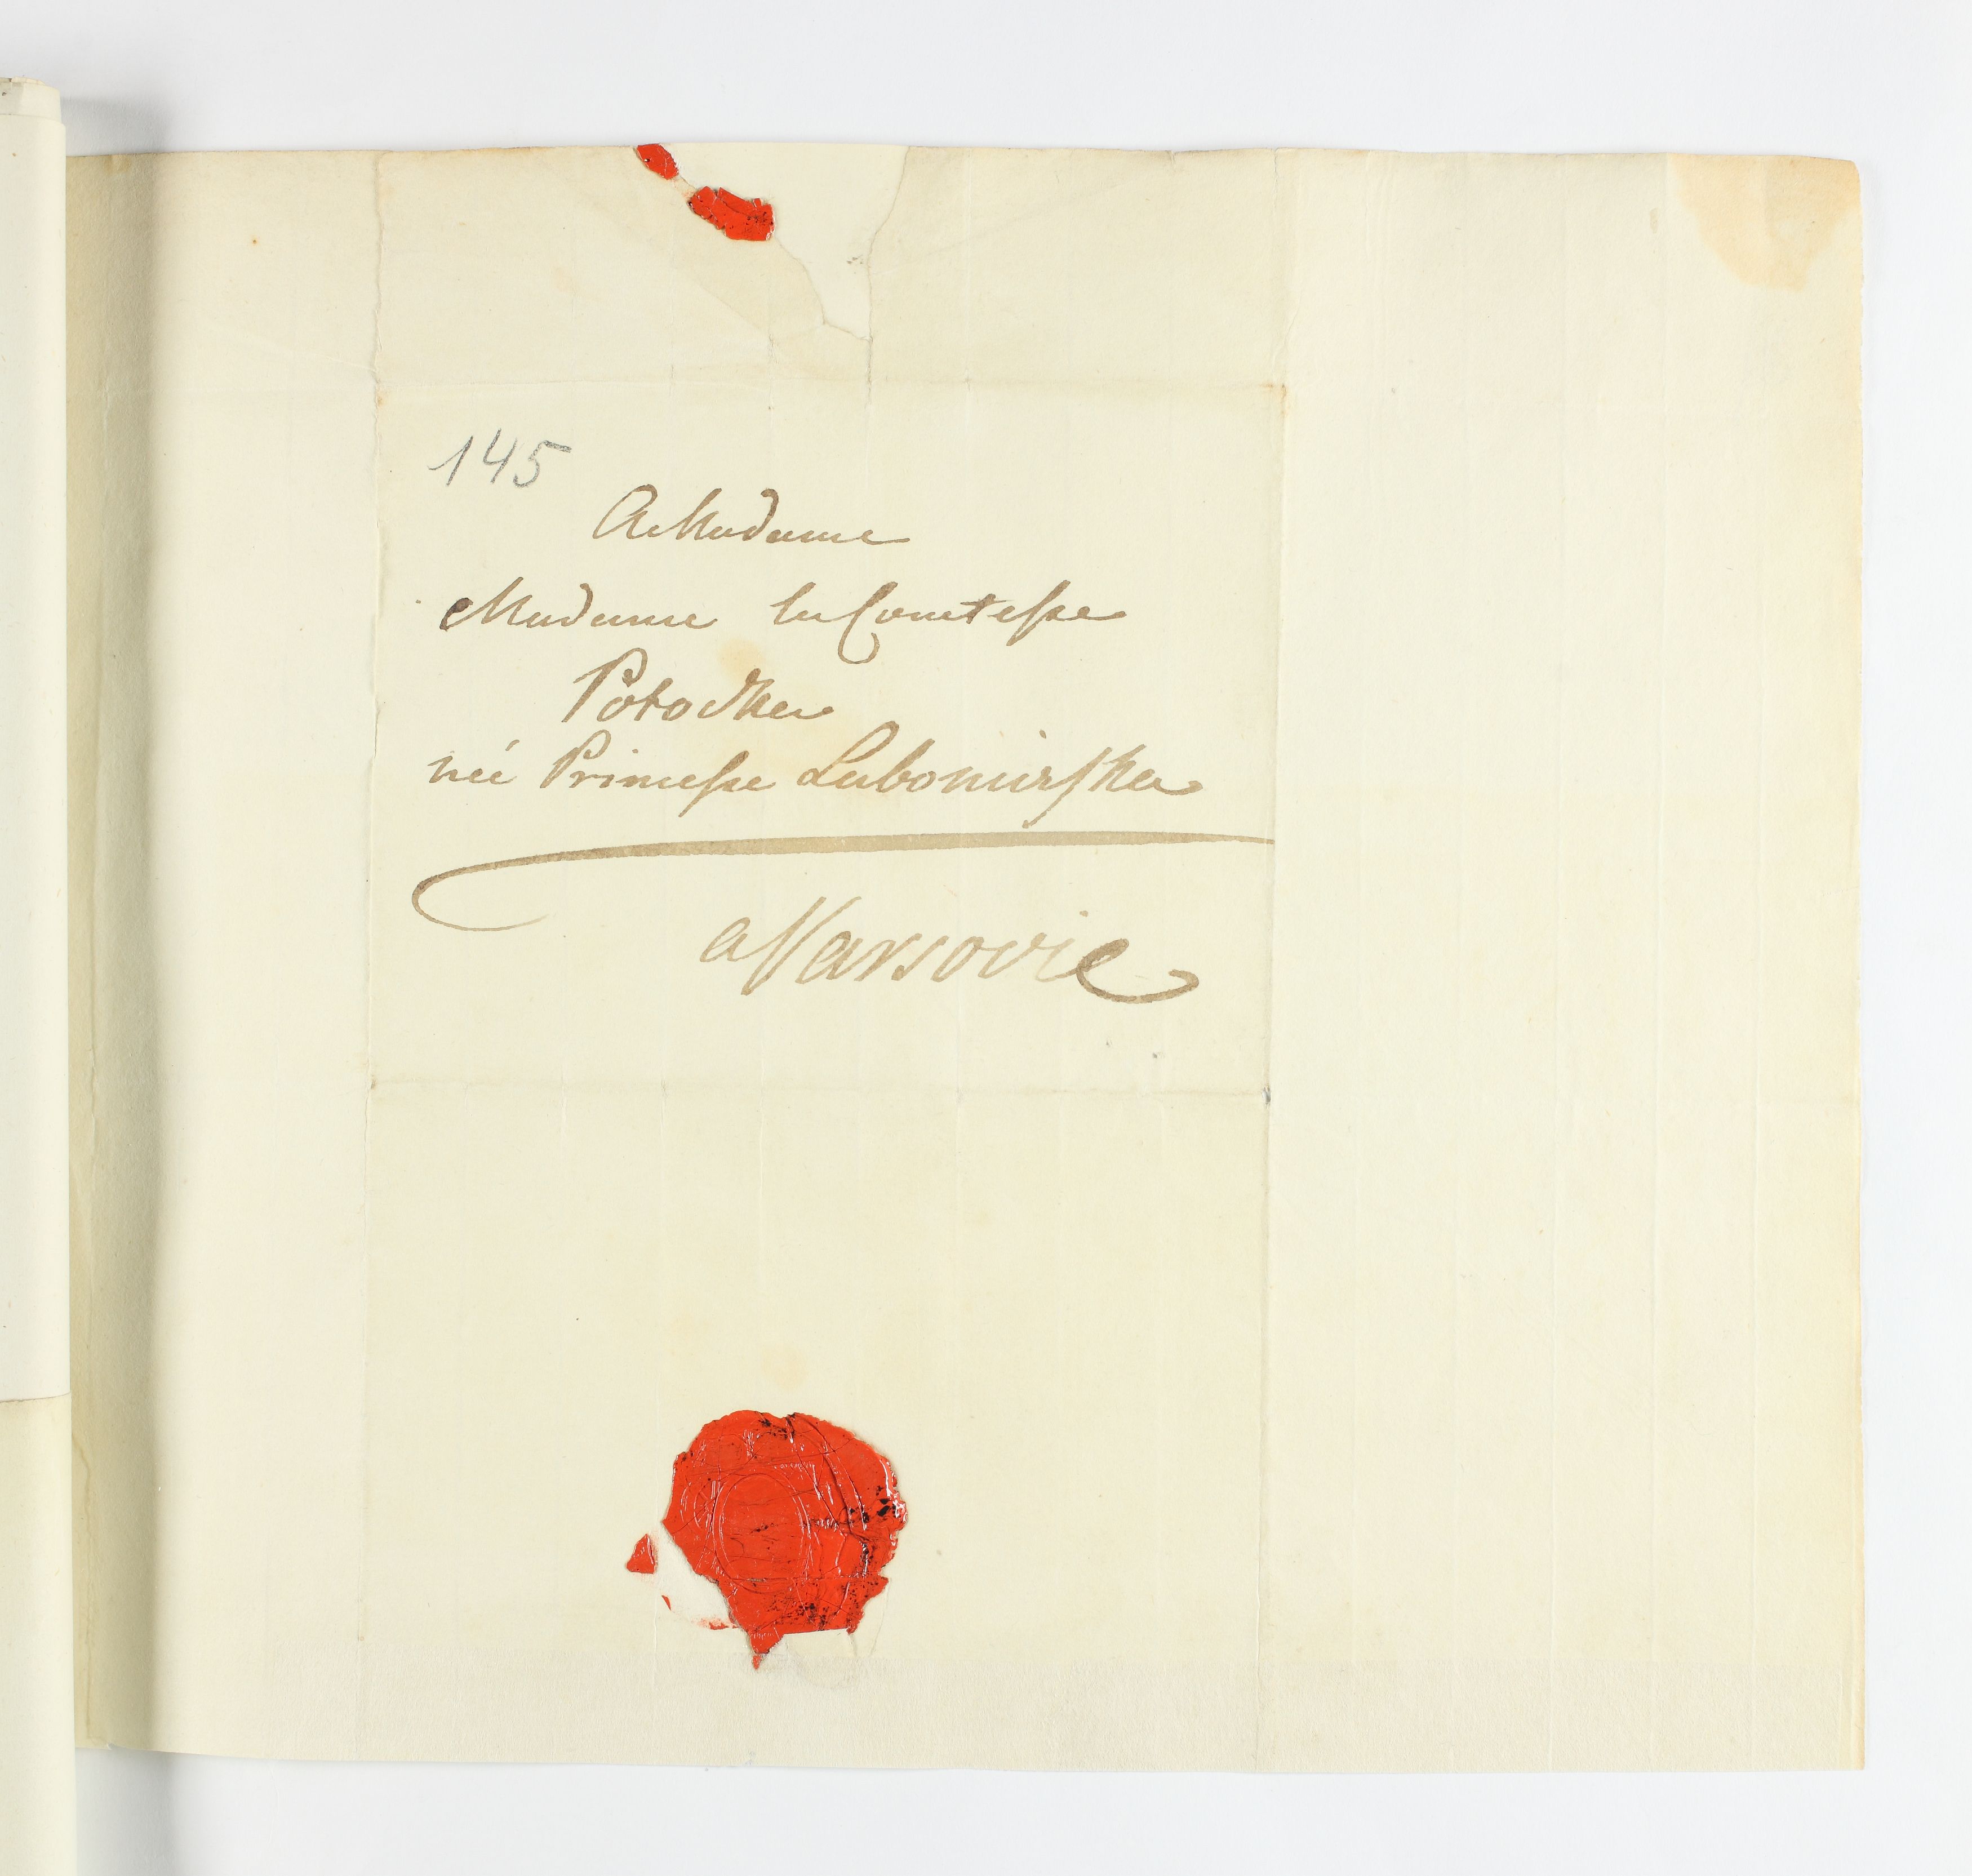 145
A Madame
Madame la Comtesse
Potocka
née Princesse Lubomirska
a Varsovie